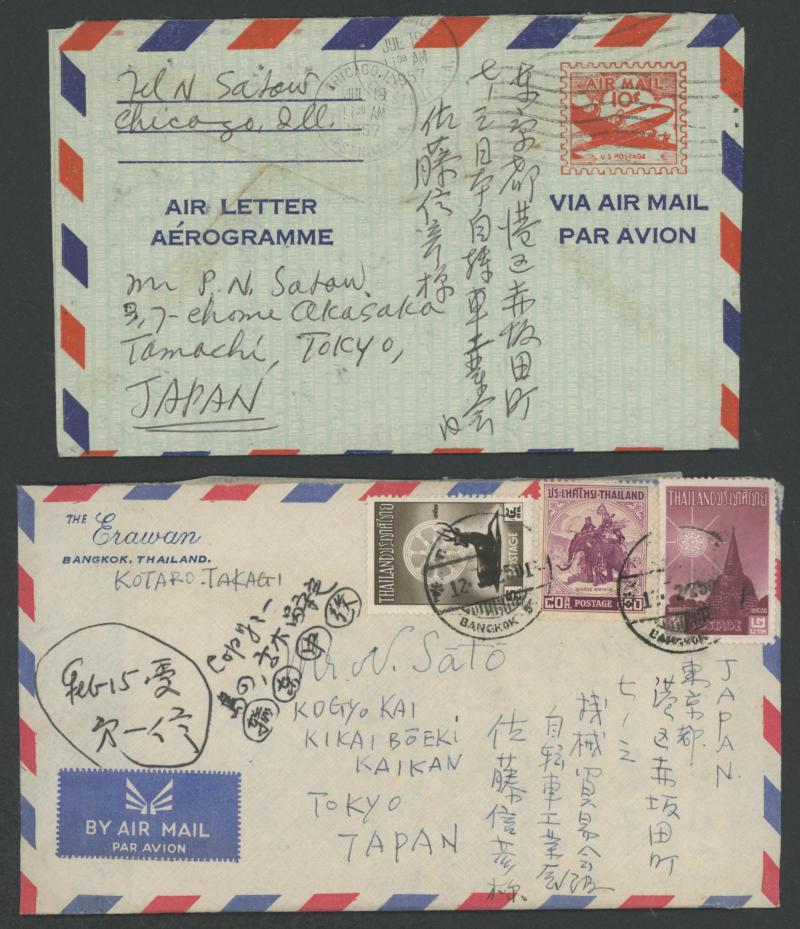 Tel N Satow
Chicago, Ill.
CHICAGO, ILL.
JUL 19
11 30 AM
1957
JUL 19
11 30 AM
1957
AIR MAIL
10¢
U.S. POSTAGE
AIR LETTER
AÉROGRAMME
VIA AIR MAIL
PAR AVION
Mr P.N. Satow
3,7-chome Akasaka
Tamachi, TOKYO,
JAPAN
東京都港区赤坂田町
七ノ三日本自轉車工業会内
佐藤信彦様
THE Erawan
BANGKOK, THAILAND.
KOTARO.TAKAGI
THAILAND ประเทศไทย
POSTAGE
ประเทศไทย-THAILAND
80 POSTAGE 80
THAILAND ประเทศไทย
POSTAGE
๒
บาท
BANGKOK
BANGKOK
Copy
Feb-15 受
Mr. N. Sātō
KOGYO KAI
KIKAI BŌEKI
KAIKAN
TOKYO
JAPAN
JAPAN
東京都
港区赤坂田町
七ノ三
機械貿易会館
自転車工業会
佐藤信彦様
BY AIR MAIL
PAR AVION